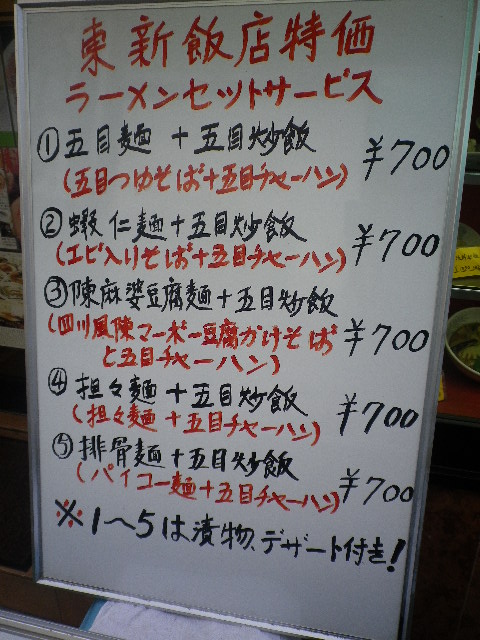 東新飯店特価
ラーメンセットサービス
①五目麺+五目炒飯 ¥700
(五目つゆそば+五目チャーハン)
②蝦仁麺+五目炒飯 ¥700
(エビ入りそば+五目チャーハン)
③陳麻婆豆腐麺+五目炒飯
(四川風陳マーボー豆腐かけそば ¥700
と五目チャーハン)
④担々麺+五目炒飯 ¥700
(担々麺+五目チャーハン)
⑤排骨麺+五目炒飯
(パイコー麺+五目チャーハン) ¥700
※1〜5は漬物、デザート付き!